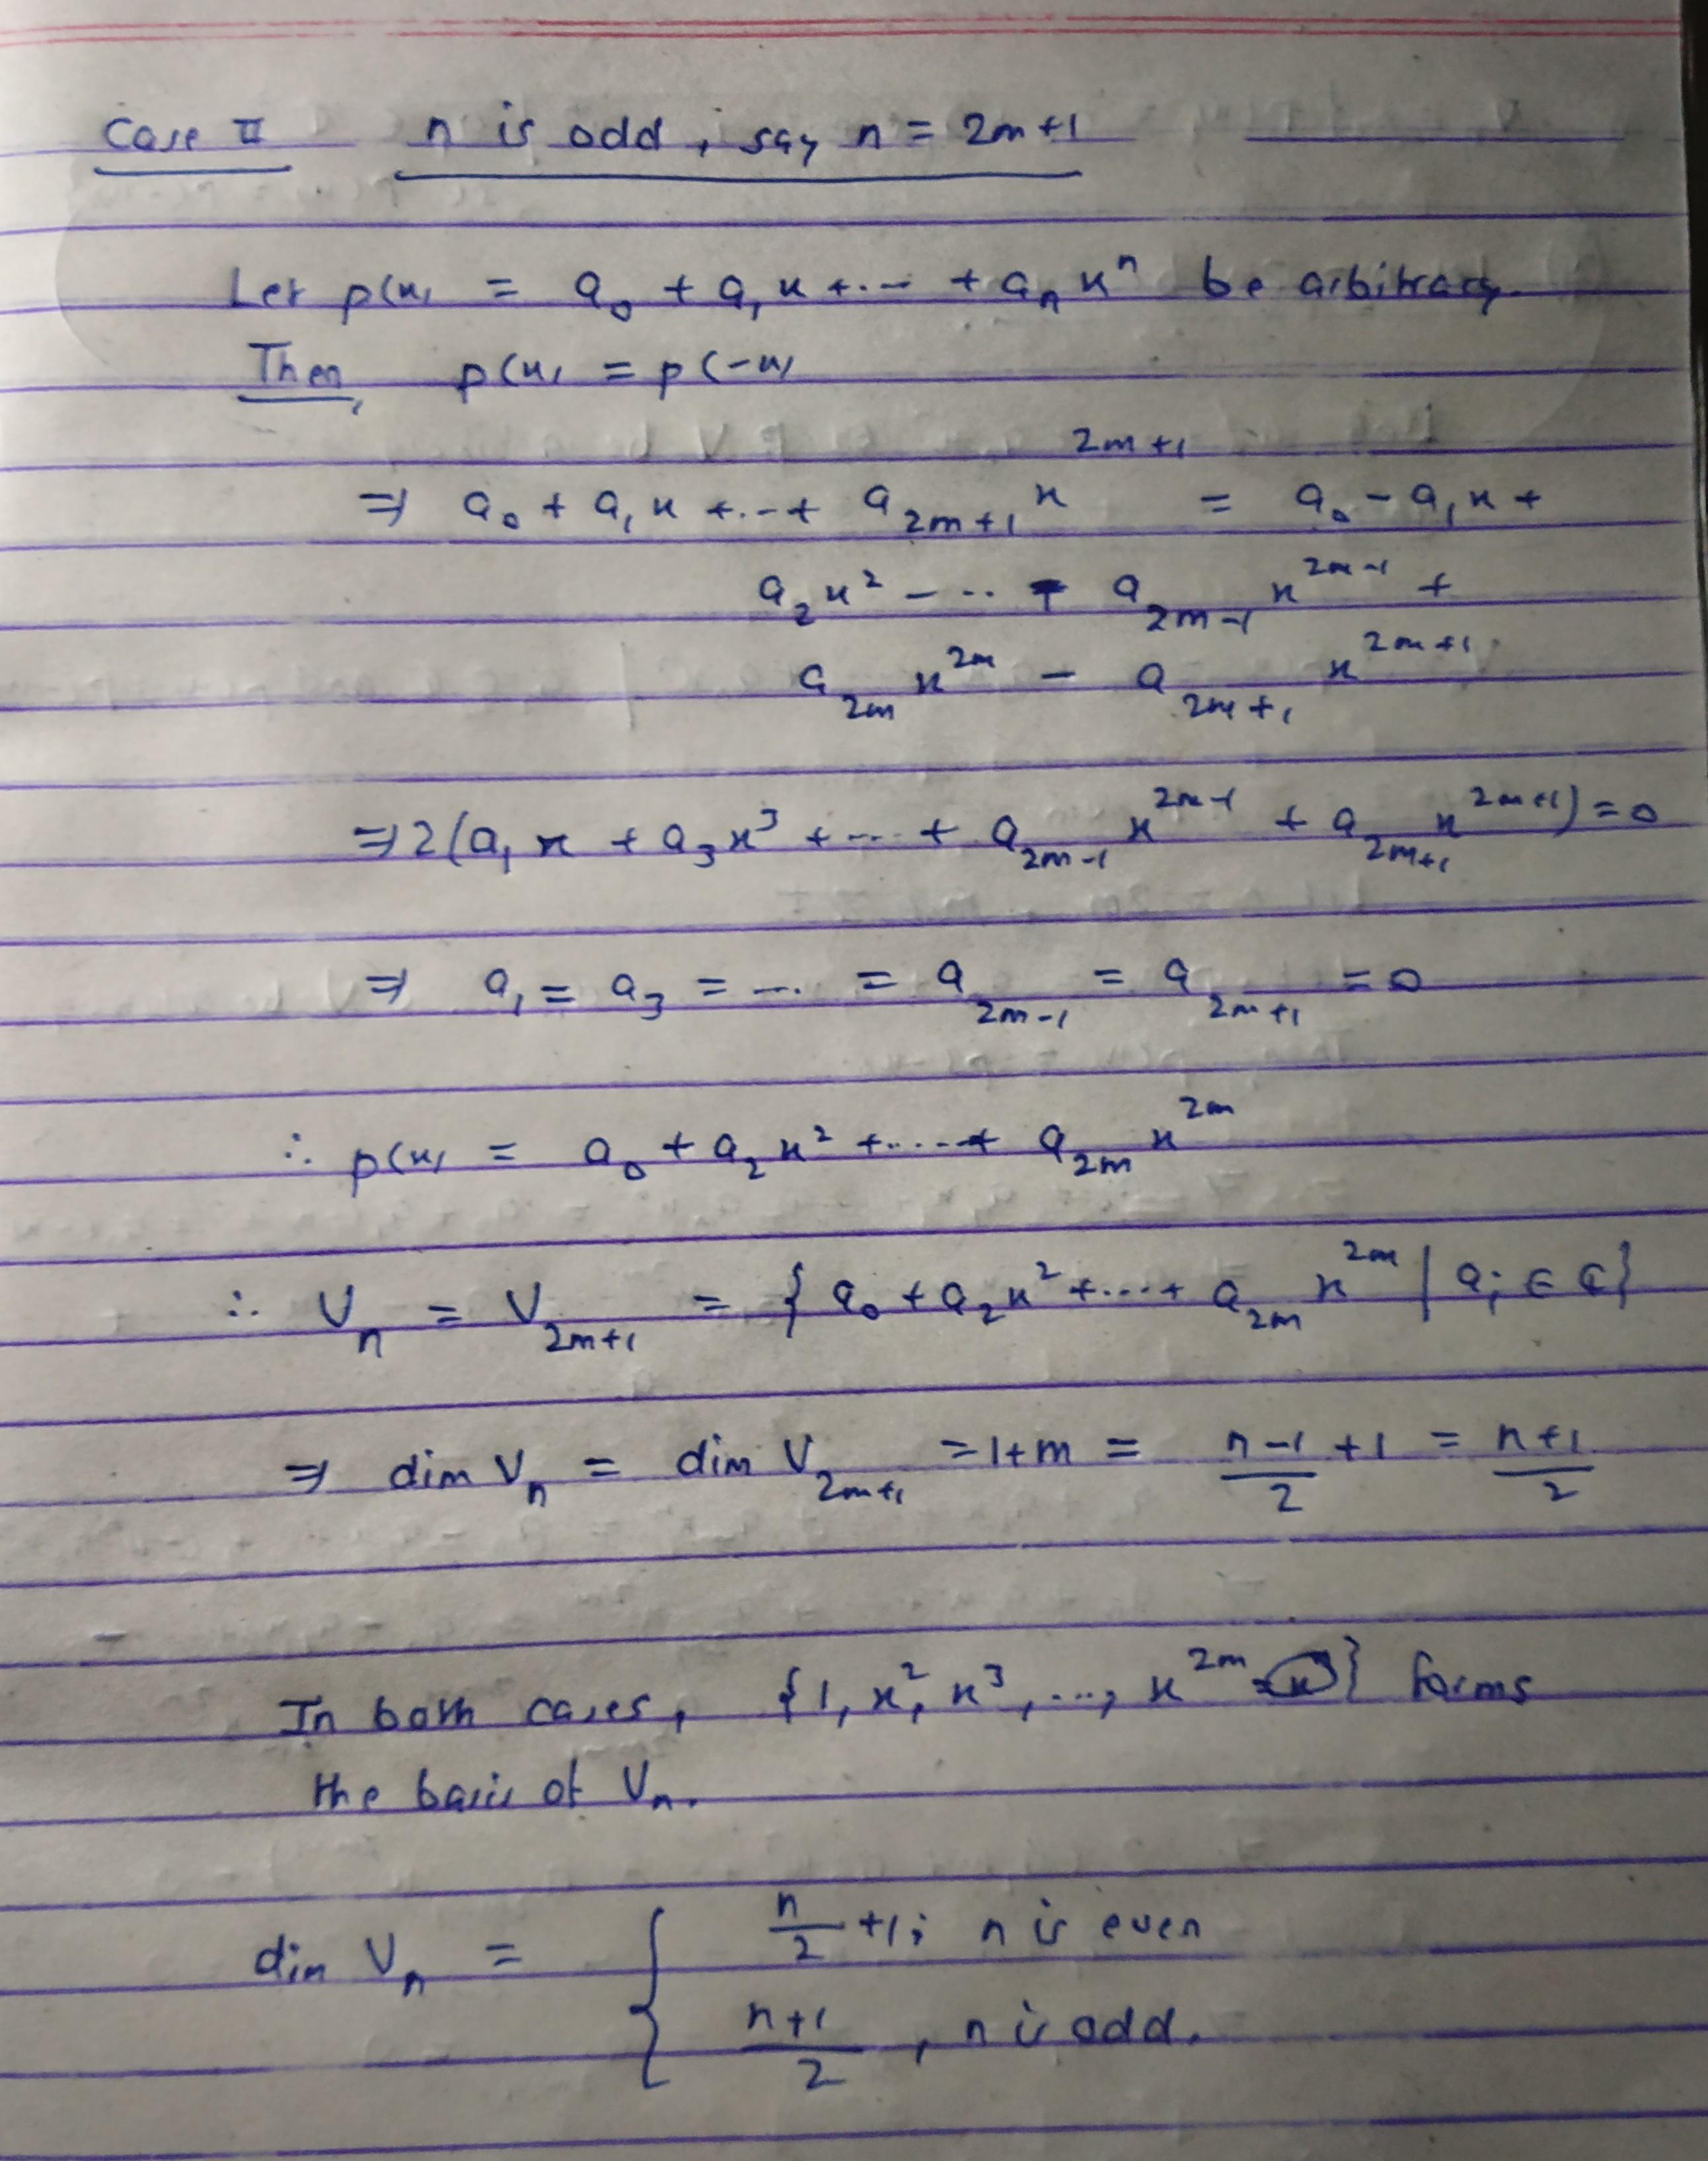 Case II n is odd, say n = 2m+1
Let p(x) = a₀ + a₁x + ... + aₙxⁿ be arbitrary.
Then, p(x) = p(-x)
⇒ a₀ + a₁x + ... + a₂ₘ₊₁ x²ᵐ⁺¹ = a₀ - a₁x +
a₂x² - ... - a₂ₘ₋₁ x²ᵐ⁻¹ +
a₂ₘ x²ᵐ - a₂ₘ₊₁ x²ᵐ⁺¹
⇒ 2(a₁x + a₃x³ + ... + a₂ₘ₋₁ x²ᵐ⁻¹ + a₂ₘ₊₁ x²ᵐ⁺¹) = 0
⇒ a₁ = a₃ = ... = a₂ₘ₋₁ = a₂ₘ₊₁ = 0
∴ p(x) = a₀ + a₂x² + ..... + a₂ₘ x²ᵐ
∴ Vₙ = V₂ₘ₊₁ = { a₀ + a₂x² + .... + a₂ₘ x²ᵐ | aᵢ ∈ ℂ }
⇒ dim Vₙ = dim V₂ₘ₊₁ = 1+m = (n-1)/2 + 1 = (n+1)/2
In both cases, {1, x², x³, ..., x²ᵐ} forms
the basis of Vₙ.
dim Vₙ = { n/2 +1; n is even
(n+1)/2, n is odd.